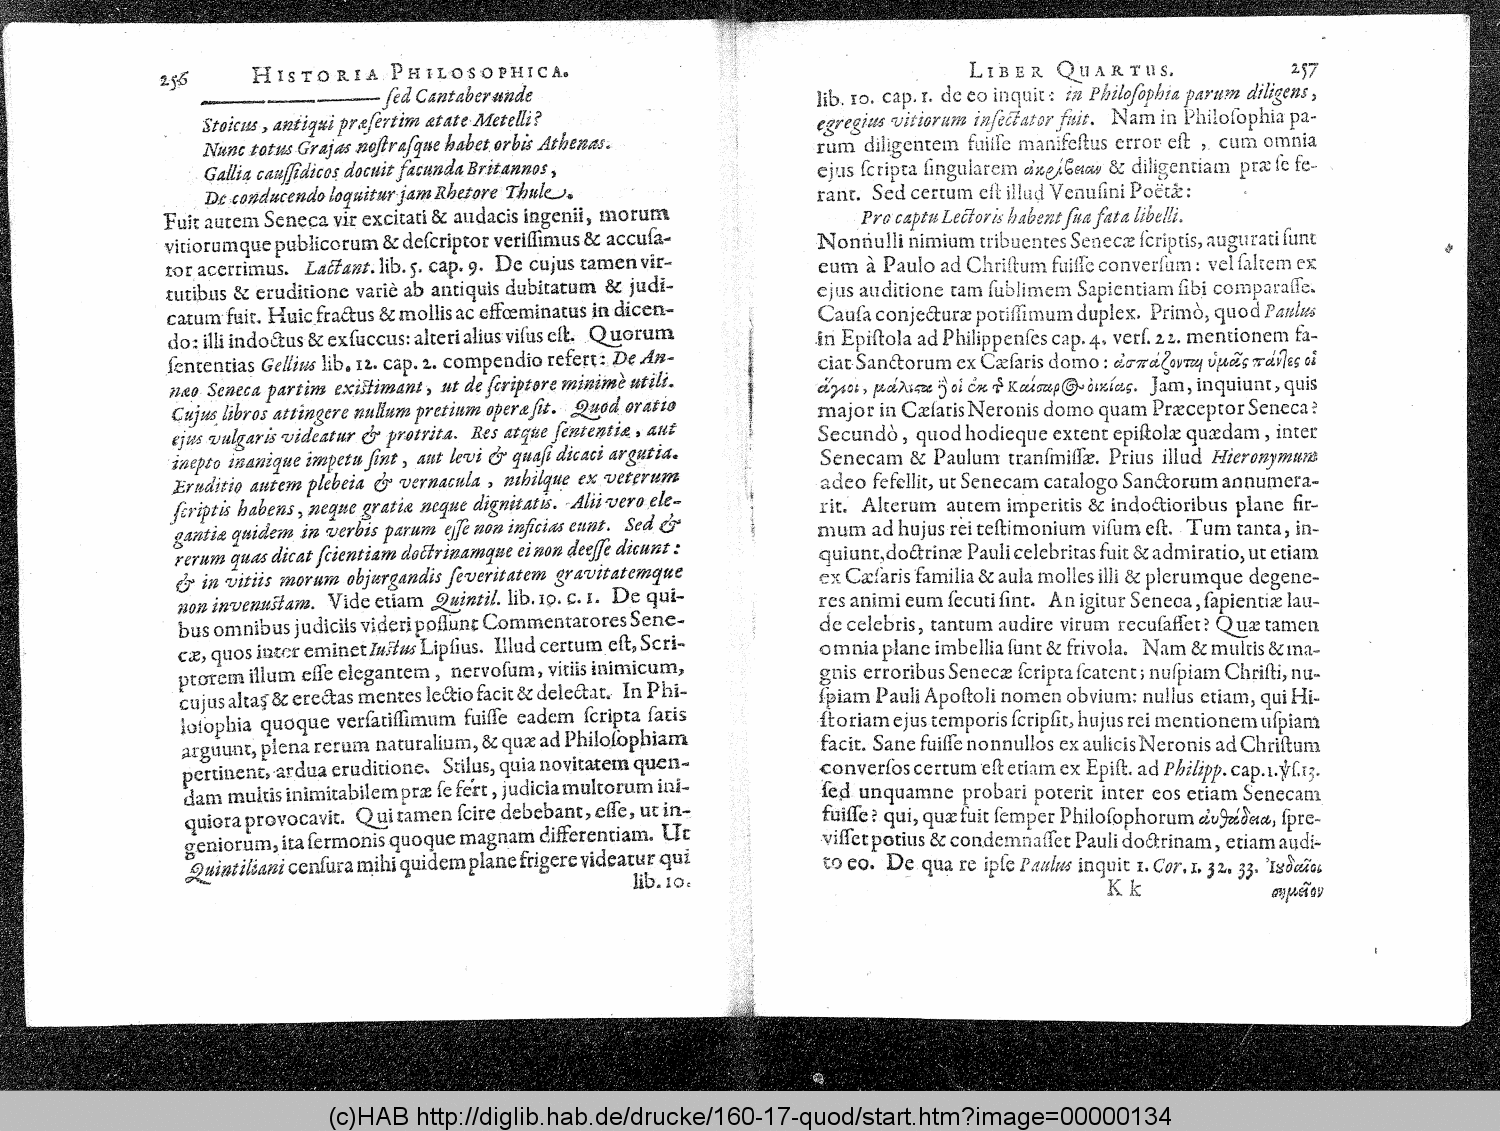 256 HISTORIA PHILOSOPHICA.
sed Cantaber unde
Stoicus, antiqui præsertim ætate Metelli?
Nunc totus Grajas nostrasque habet orbis Athenas.
Gallia caussidicos docuit facunda Britannos,
De conducendo loquitur jam Rhetore Thule.
Fuit autem Seneca vir excitati & audacis ingenii, morum
vitiorumque publicorum & descriptor verissimus & accusa-
tor acerrimus. Lactant. lib. 5. cap. 9. De cujus tamen vir-
tutibus & eruditione variè ab antiquis dubitatum & judi-
catum fuit. Huic fractus & mollis ac effœminatus in dicen-
do: illi indoctus & exsuccus: alteri alius visus est. Quorum
sententias Gellius lib. 12. cap. 2. compendio refert: De An-
næo Seneca partim existimant, ut de scriptore minimè utili.
Cujus libros attingere nullum pretium operæ sit. Quod oratio
ejus vulgaris videatur & protrita. Res atque sententiæ, aut
inepto inanique impetu sint, aut levi & quasi dicaci argutia.
Eruditio autem plebeia & vernacula, nihilque ex veterum
scriptis habens, neque gratiæ neque dignitatis. Alii vero ele-
gantiæ quidem in verbis parum esse non inficias eunt. Sed &
rerum quas dicat scientiam doctrinamque ei non deesse dicunt:
& in vitiis morum objurgandis severitatem gravitatemque
non invenustam. Vide etiam Quintil. lib. 10. c. 1. De qui-
bus omnibus judiciis videri possunt Commentatores Sene-
cæ, quos inter eminet Iustus Lipsius. Illud certum est, Scri-
ptorem illum esse elegantem, nervosum, vitiis inimicum,
cujus altas & erectas mentes lectio facit & delectat. In Phi-
losophia quoque versatissimum fuisse eadem scripta satis
arguunt, plena rerum naturalium, & quæ ad Philosophiam
pertinent, ardua eruditione. Stilus, quia novitatem quen-
dam multis inimitabilem præ se fert, judicia multorum ini-
quiora provocavit. Qui tamen scire debebant, esse, ut in-
geniorum, ita sermonis quoque magnam differentiam. Ut
Quintiliani censura mihi quidem plane frigere videatur qui
lib. 10.
LIBER QUARTUS. 257
lib. 10. cap. 1. de eo inquit: in Philosophia parum diligens,
egregius vitiorum insectator fuit. Nam in Philosophia pa-
rum diligentem fuisse manifestus error est, cum omnia
ejus scripta singularem ἀκρίβειαν & diligentiam præ se fe-
rant. Sed certum est illud Venusini Poëtæ:
Pro captu Lectoris habent sua fata libelli.
Nonnulli nimium tribuentes Senecæ scriptis, augurati sunt
eum à Paulo ad Christum fuisse conversum: vel saltem ex
ejus auditione tam sublimem Sapientiam sibi comparasse.
Causa conjecturæ potissimum duplex. Primò, quod Paulus
in Epistola ad Philippenses cap. 4. vers. 22. mentionem fa-
ciat Sanctorum ex Cæsaris domo: ἀσπάζονται ὑμᾶς πάντες οἱ
ἅγιοι, μάλιστα ἢ οἱ ἐκ τ Καίσαρος οἰκίας. Jam, inquiunt, quis
major in Cæsaris Neronis domo quam Præceptor Seneca?
Secundò, quod hodieque extent epistolæ quædam, inter
Senecam & Paulum transmissæ. Prius illud Hieronymum
adeo fefellit, ut Senecam catalogo Sanctorum annumera-
rit. Alterum autem imperitis & indoctioribus plane fir-
mum ad hujus rei testimonium visum est. Tum tanta, in-
quiunt, doctrinæ Pauli celebritas fuit & admiratio, ut etiam
ex Cæsaris familia & aula molles illi & plerumque degene-
res animi eum secuti sint. An igitur Seneca, sapientiæ lau-
de celebris, tantum audire virum recusasset? Quæ tamen
omnia plane imbellia sunt & frivola. Nam & multis & ma-
gnis erroribus Senecæ scripta scatent; nuspiam Christi, nu-
spiam Pauli Apostoli nomen obvium: nullus etiam, qui Hi-
storiam ejus temporis scripsit, hujus rei mentionem uspiam
facit. Sane fuisse nonnullos ex aulicis Neronis ad Christum
conversos certum est etiam ex Epist. ad Philipp. cap. 1. ỳs. 13.
sed unquamne probari poterit inter eos etiam Senecam
fuisse? qui, quæ fuit semper Philosophorum αὐθάδεια, spre-
visset potius & condemnasset Pauli doctrinam, etiam audi-
to eo. De qua re ipse Paulus inquit 1. Cor. 1. 32. 33. Ἰουδαῖοι
K k σημεῖον
(c)HAB http://diglib.hab.de/drucke/160-17-quod/start.htm?image=00000134